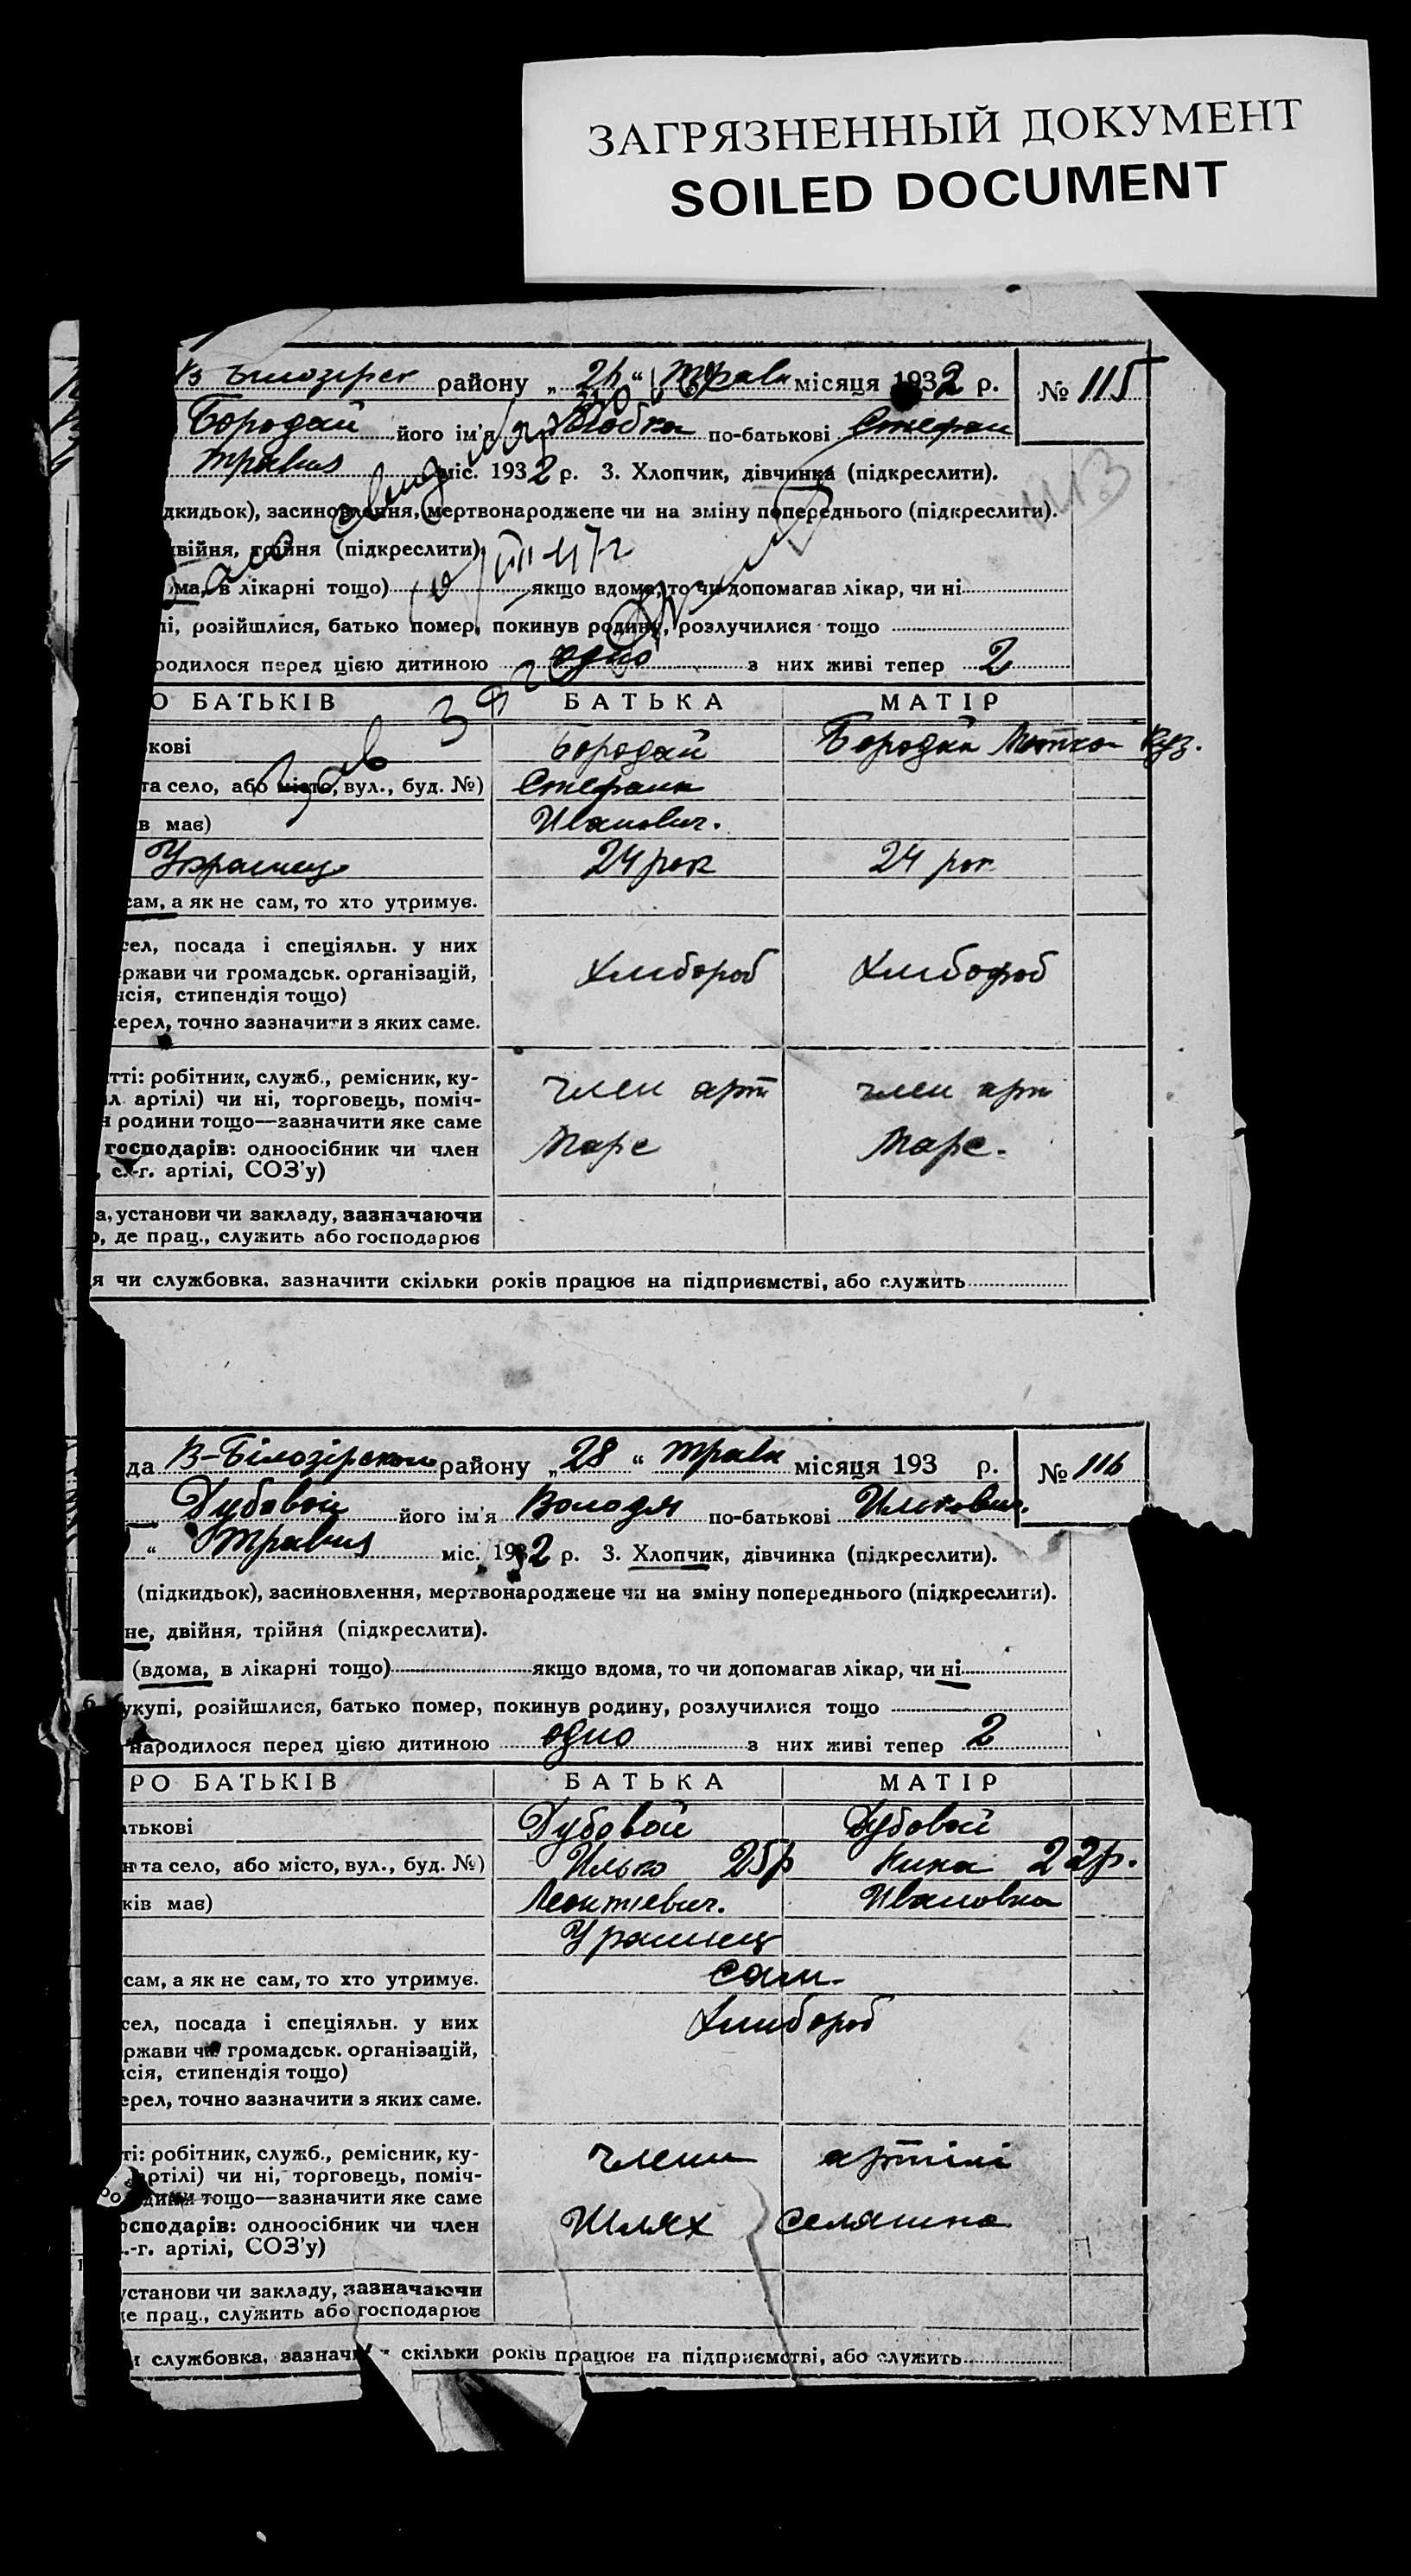 ЗАГРЯЗНЕННЫЙ ДОКУМЕНТ
SOILED DOCUMENT
району „ “ Трав місяця 1932 р. № 115
Бородай його ім'я по-батькові Стефан
травня міс. 1932 р. 3. Хлопчик, дівчинка (підкреслити).
дкидьок), засиновлення, мертвонароджене чи на зміну попереднього (підкреслити).
двійня, трійня (підкреслити)
ма, в лікарні тощо) якщо вдома, то чи допомагав лікар, чи ні
пі, розійшлися, батько помер, покинув родину, розлучилися тощо
родилося перед цією дитиною одно з них живі тепер 2
О БАТЬКІВ БАТЬКА МАТІР
кові Бородай Бородай Куз.
та село, або місто, вул., буд. №) Стефана
в має) Иванович.
24 рок 24 рок
сам, а як не сам, то хто утримує.
сел, посада і спеціяльн. у них
ржави чи громадськ. організацій, Хлибороб Хлибороб
нсія, стипендія тощо)
ерел, точно зазначити з яких саме.
тті: робітник, служб., ремісник, ку- член арт член арт
л артілі) чи ні, торговець, поміч-
родини тощо—зазначити яке саме
господарів: одноосібник чи член Марс Марс.
с.-г. артілі, СОЗ'у)
а, установи чи закладу, зазначаючи
о, де прац., служить або господарює
я чи службовка, зазначити скільки років працює на підприємстві, або служить
да В-Білозірского району „ 28 “ Трав місяця 193 р. № 116
Дубовой його ім'я Володя по-батькові Илькович.
“ Травня міс. 1932 р. 3. Хлопчик, дівчинка (підкреслити).
(підкидьок), засиновлення, мертвонароджене чи на зміну попереднього (підкреслити).
не, двійня, трійня (підкреслити).
(вдома, в лікарні тощо) якщо вдома, то чи допомагав лікар, чи ні
укупі, розійшлися, батько помер, покинув родину, розлучилися тощо
народилося перед цією дитиною одно з них живі тепер 2
РО БАТЬКІВ БАТЬКА МАТІР
атькові Дубовой Дубовой
н та село, або місто, вул., буд. №) Илько 25р 22р.
ків має) Леонтиевич. Ивановна
Украинец
сам, а як не сам, то хто утримує. сам.
сел, посада і спеціяльн. у них Хлибороб
ржави чи громадськ. організацій,
сія, стипендія тощо)
ерел, точно зазначити з яких саме.
ті: робітник, служб., ремісник, ку- члени артілі
артілі) чи ні, торговець, поміч-
дини тощо—зазначити яке саме
осподарів: одноосібник чи член Шлях селянина
.-г. артілі, СОЗ'у)
установи чи закладу, зазначаючи
е прац., служить або господарює
службовка, зазначи скільки років працює на підприємстві, або служить